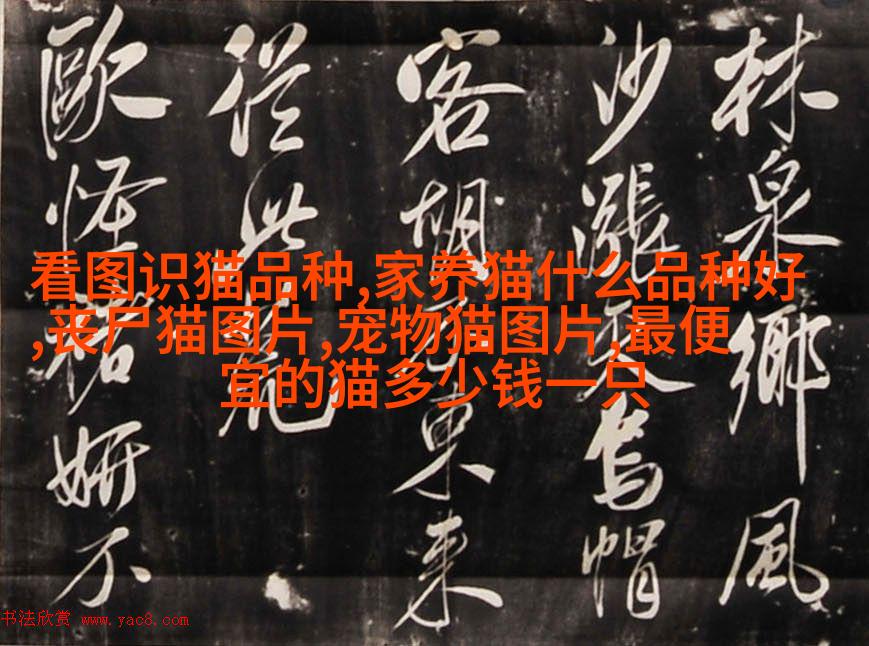 林泉鄉風
沙漲天烏帽
客胡東來
從此荒
歐怪褚妍不
看图识猫品种,家养猫什么品种好
,丧尸猫图片,宠物猫图片,最便
宜的猫多少钱一只
书法欣赏 www.yac8.com